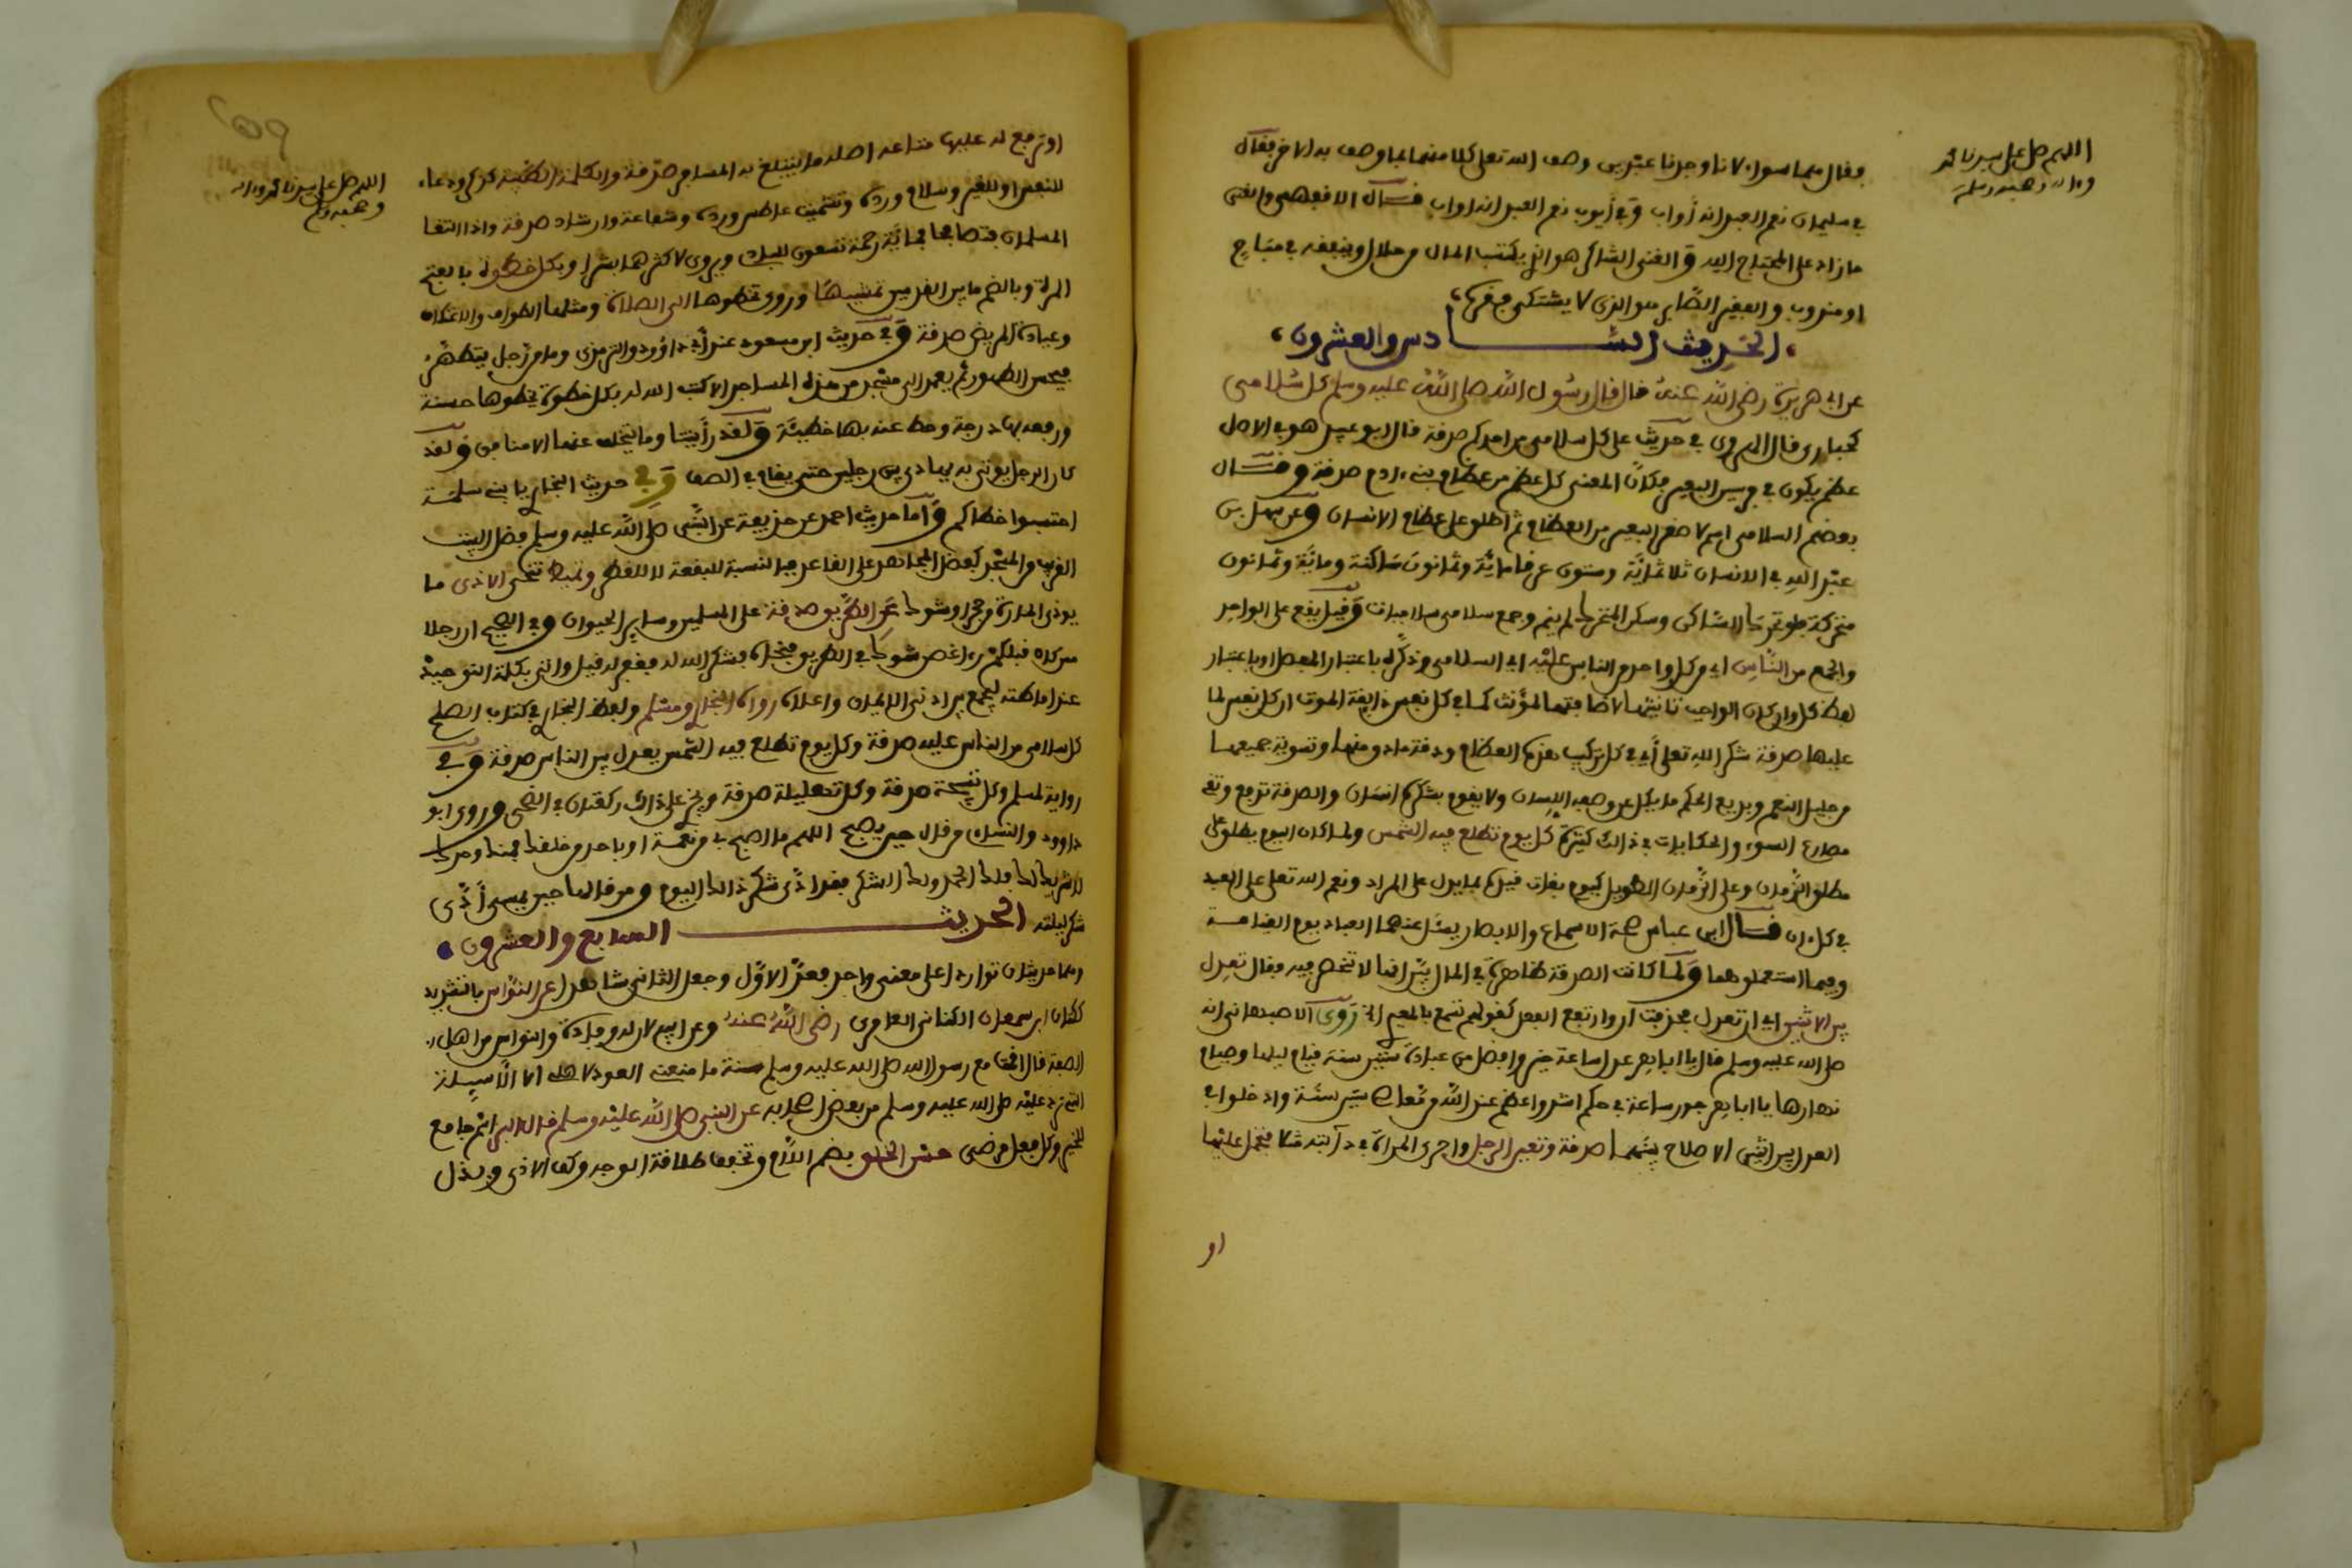 اللهم صل على سيدنا محمد
وءاله وصحبه وسلم
فقال هما سواء لانا وجدنا عبدين وصف الله تعلى كلا منهما بما وصف به الاخر فقال
في سليمان نعم العبد انه أواب وفي أيوب نعم العبد انه اواب قال الافقهسي والغنى
ما زاد على المحتاج اليه والغني الشاكر هو الذي يكتسب المال من حلال وينفقه في مباح
او مندوب والفقير الصابر هو الذي لا يشتكي فقره
الحديث السادس والعشرون
عن ابي هريرة رضي الله عنه قال قال رسول الله صلى الله عليه وسلم كل سلامى
كحبارى قال الهروي في حديث على كل سلامى من احدكم صدقة قال ابو عبيد هو في الاصل
عظم يكون في فرسن البعير فكان المعنى كل عظم من عظام بنء ادم صدقة وقال
بعضهم السلامى اسم لاصغر البعير من العظام ثم اطلق على عظام الانسان وعن سهل بن
عبد الله في الانسان ثلاثمائة وستون عرقا مائة وثمانون ساكنة ومائة وثمانون
متحركة فلو تحرك الساكن وسكن المتحرك لم ينم وجمع سلامى سلاميات وقيل يقع على الواحد
والجمع من الناس اي من كل واحد من الناس عليه اي السلامى وذكره باعتبار المفصل او باعتبار
لفظ كل وان كان الواجب تانيثها لاضافتها لمؤنث كما في كل نفس ذايقة الموت ان كل نفس لما
عليها صدقة شكرا لله تعلى أي في كل تركيب هذه العظام ودقة مادونها وتسوية جميعها
من جليل النعم وبديع الحكم ما يكل عن وصفه اللسان ولا يقوم بشكره انسان والصدقة تدفع وتق
مصارع السوء والحكايات في ذالك كثيرة كل يوم تطلع فيه الشمس ولما كان اليوم يطلق على
مطلق الزمان وعلى الزمان الطويل كيوم بعاث قيده بما يدل على المراد ونعم الله تعلى على العبد
في كل ءان قال ابن عباس صحة الاسماع والابصار يسئل عنهما العباد يوم القيامة
وفيما استعملوهما ولما كانت الصدقة ظاهرة في المال بين انها لا تنحصر فيه فقال تعدل
بين الاثنين اي ان تعدل فحذفت ان وارتفع الفعل كقولهم تسمع بالمعيدي الخ روى الاصبهاني انه
صلى الله عليه وسلم قال يا ابا هر عدل ساعة خير وافضل من عبادة ستين سنة قيام ليلها وصيام
نهارها يا ابا هر جور ساعة في حكم اشد واعظم عند الله من معاصي ستين سنة وادخلوا في
العدل بين اثنين الاصلاح بينهما صدقة وتعين الرجل واحرى المراة في دآبته مثلا فتحمل عليها
او
اللهم صل على سيدنا محمد وءاله
وصحبه وسلم
او ترفع له عليها متاعه اصله ما يتبلغ به المسافر صدقة والكلمة الطيبة كذكر ودعاء
للنفس او للغير وسلام ورده وتشميت عاطس ورده وشفاعة وارشاد صدقة واذا التقا
المسلمان فتصافحا فمائة رحمة تسعون للبادئ ويروى لاكثرهما بشرا وبكل خطوة بالفتح
المرة وبالضم ما بين القدمين تمشيها وروي تخطوها الى الصلاة ومثلها الطواف والاعتكاف
وعيادة المريض صدقة وفي حديث ابن مسعود عند أبي داؤود والترمذي وما من رجل يتطهر
فيحسن الطهور ثم يعمد الى مسجد من هذه المساجد الا كتب الله له بكل خطوة يخطوها حسنة
ورفعه بها درجة وحط عنه بها خطيئة ولقد رأيتنا وما يتخلف عنها الا منافق ولقد
كان الرجل يوتى به يهادى بين رجلين حتى يقام في الصف وفي حديث البخاري يا بني سلمة
احتسبوا خطاكم وأما حديث احمد عن حذيفة عن النبي صلى الله عليه وسلم فضل البيت
القريب من المسجد كفضل المجاهد على القاعد فبالنسبة للبقعة لا للفضل وتميط تنحي الاذى ما
يوذي المارة من حجر او شوك عن الطريق صدقة على المسلمين وساير الحيوان وفي الصحيح ان رجلا
ممن كان قبلكم رءا غصن شوك في الطريق فنحاه فشكر الله له فغفر له قيل والى بكلمة التوحيد
عند اماطته ليجمع بين ادنى الايمان واعلاه رواه البخاري ومسلم ولفظ البخاري في كتاب الصلح
كل سلامى من الناس عليه صدقة وكل يوم تطلع فيه الشمس يعدل بين الناس صدقة وفي
رواية لمسلم وكل تسبيحة صدقة وكل تهليلة صدقة ويجزي على ذالك ركعتان في الضحى وروى ابو
داوود والنساءي من قال حين يصبح اللهم ما اصبح بي من نعمة او باحد من خلقك فمنك وحدك
لا شريك لك فلك الحمد ولك الشكر فقد أدى شكر ذالك اليوم ومن قالها حين يمسي أدى
شكر ليلته
الحديث السابع والعشرون
وهما حديثان تواردا على معنى واحد فعد الاول وجعل الثاني شاهدا عن النواس بالتشديد
ككتان ابن سمعان الكناني العامري رضي الله عنه وعن ابيه لان له وفادة والنواس من اهل
الصفة قال اقمت مع رسول الله صلى الله عليه وسلم سنة ما منعني العود لاهلي الا الاسيلة
عليه صلى الله عليه وسلم من بعض اصحابه عن النبي صلى الله عليه وسلم قال البر اسم جامع
للخير وكل فعل مرضي حسن الخلق بضم اللام وتخفيفها طلاقة الوجه وكف الاذى وبذل